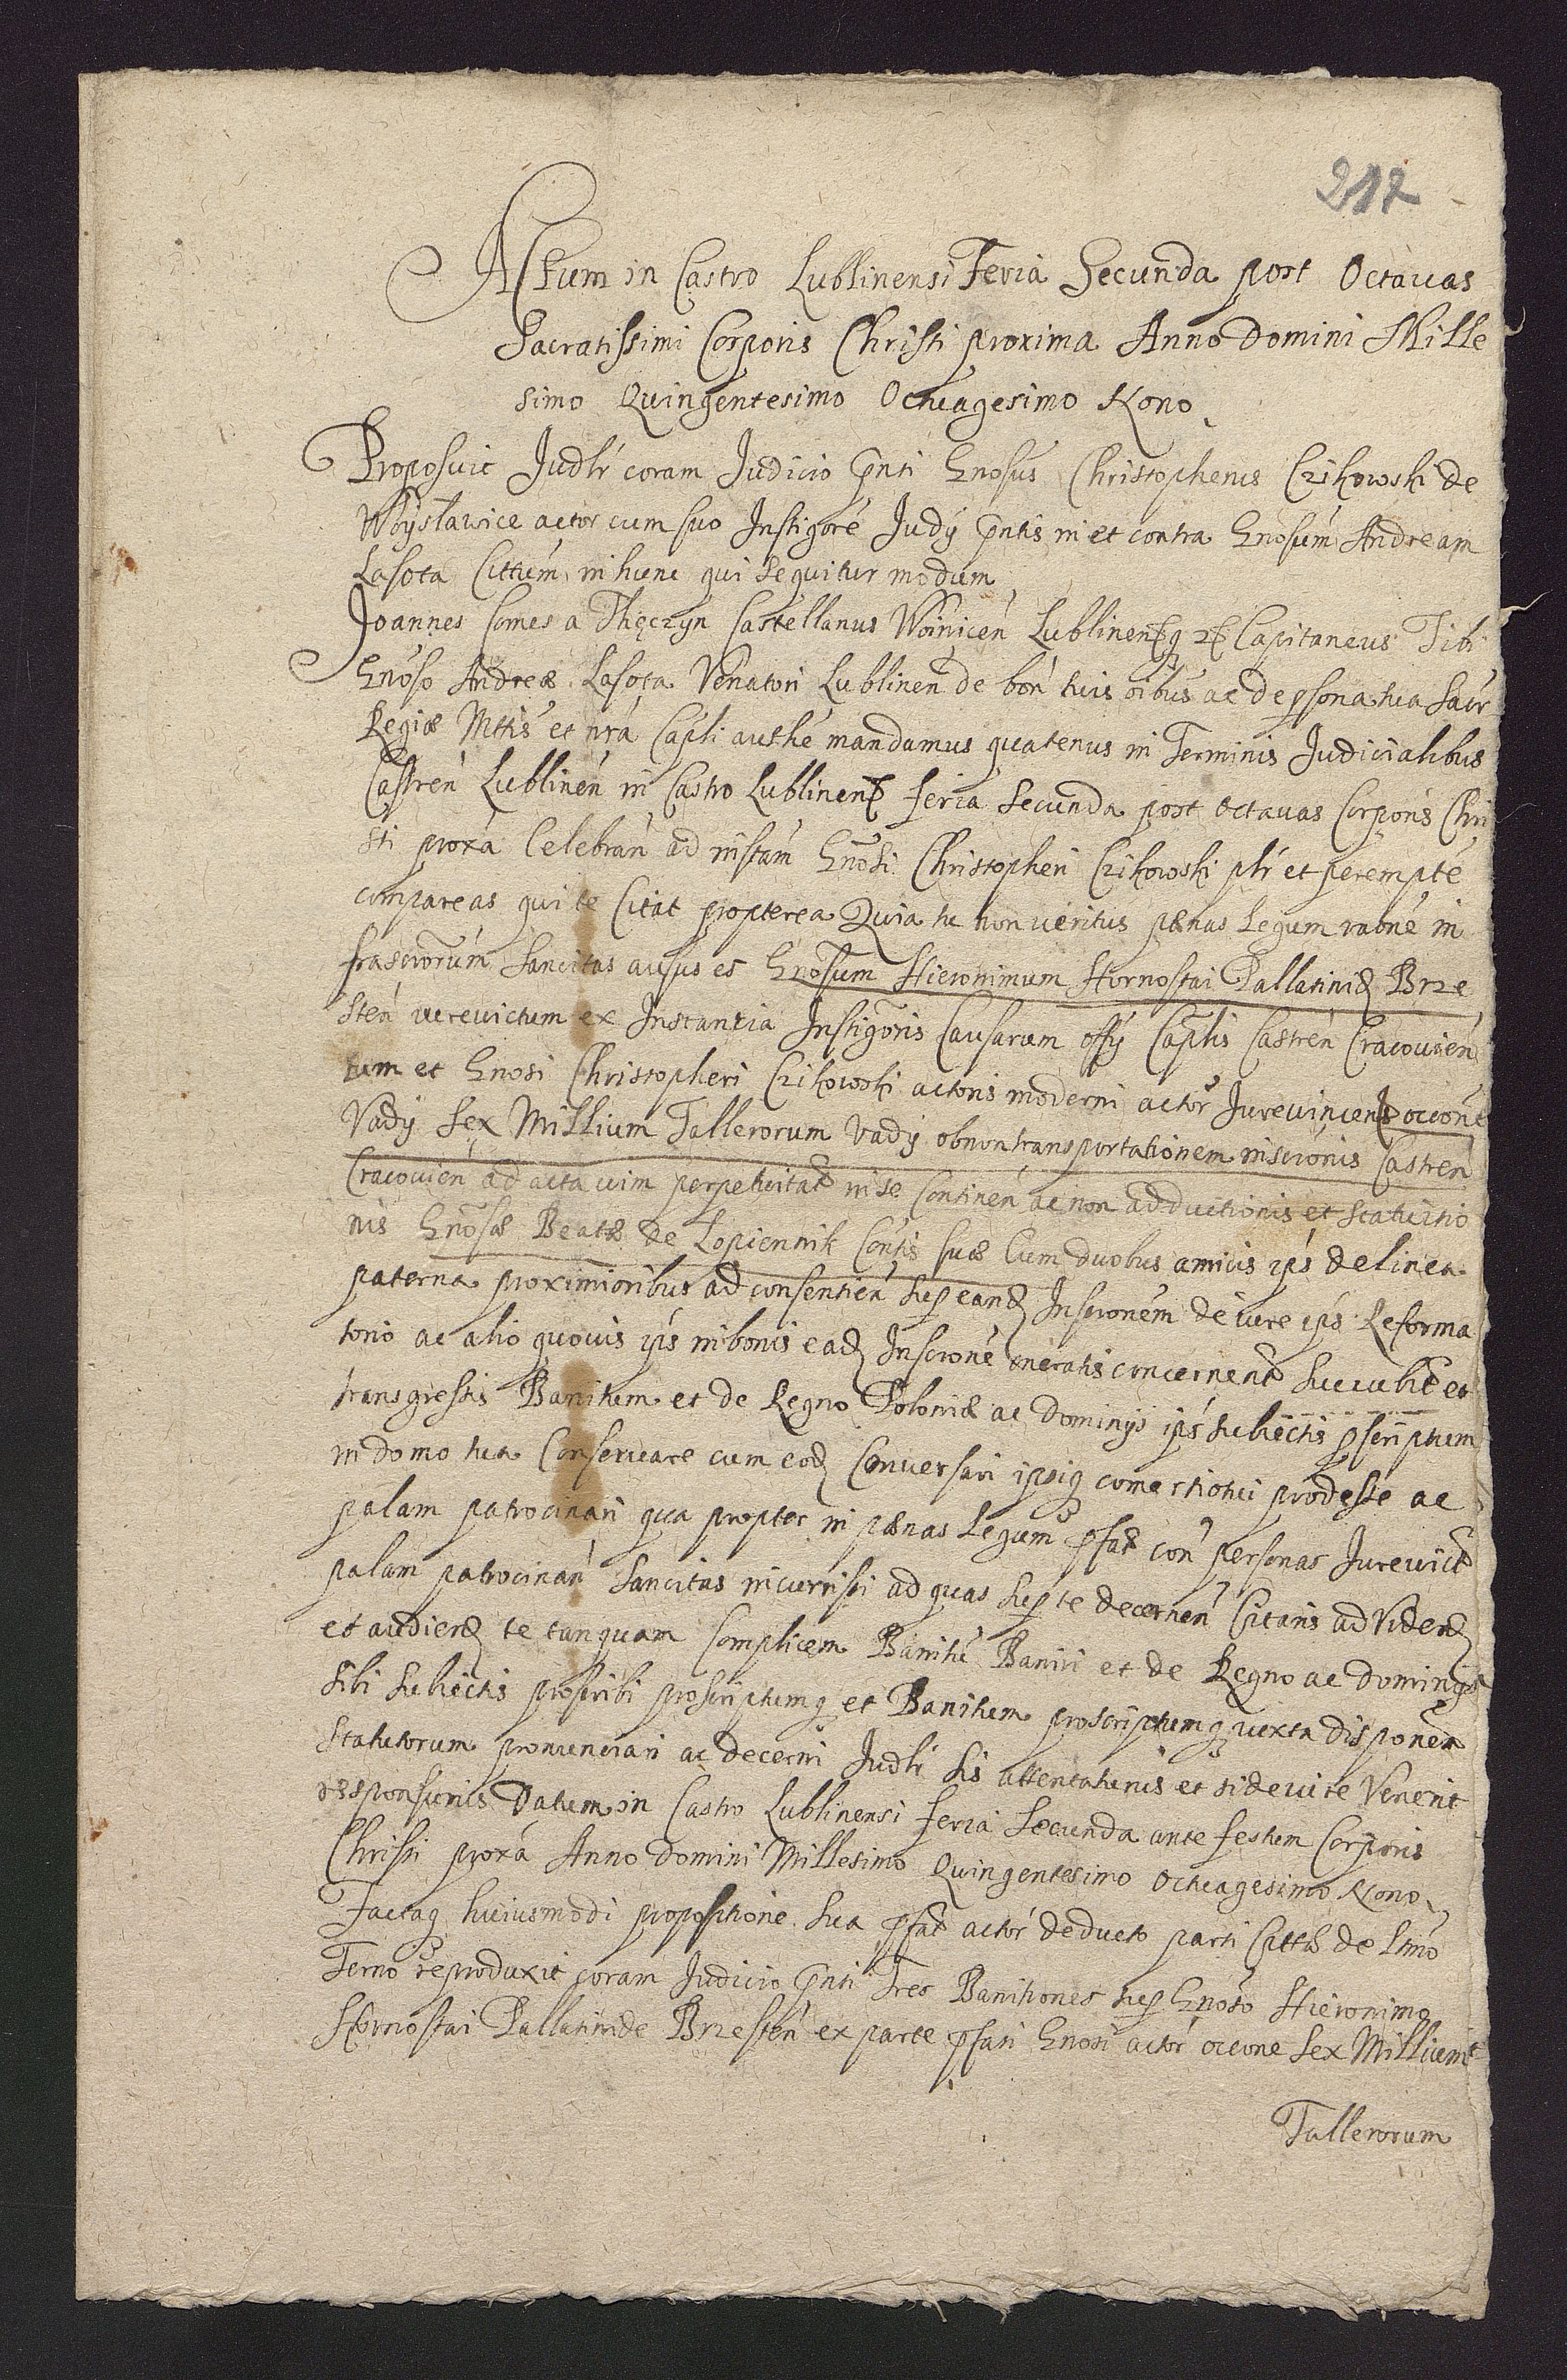 212
Actum in Castro Lublinensi Feria Secunda post Octauas
Sacratissimi Corporis Christi proxima Anno Domini Mille
simo Quingentesimo Octuagesimo Nono
Proposuit Judlr coram Judicio pnti Gnosus Christopherus Czikowski de
Woyslawice actor cum suo Instigore Judy pntis in et contra Gnosum Andream
Lasota Cittum in hunc qui sequitur modum
Joannes Comes a Thęczyn Castellanus Woinicen Lublinenq Capitaneus Tibi
Gnoso Andreæ Lasota Venatori Lublinen de bon tuis oibus ac de psona tua Sacr
Regiæ Mttis et nra Capli authe mandamus quatenus in Terminis Judicialibus
Castren Lublinen in Castro Lublinen feria Secunda post Octauas Corporis Chri
sti proxa Celebran ad instam Gnosi Christopheri Czikowski plr et perempte
compareas qui te Citat propterea Quia tu non veritus pænas Legum raone in
frascrorum Sancitas ausus es Gnosum Hieronimum Hornostai Pallatinid Brze
sten iureuictum ex Instantia Instigoris Causarum offy Caplis Castren Cracouien
tum et Gnosi Christopheri Czikowski actoris moderni actor Jureuincen occone
Vady Sex Millium Tallerorum Vady ob non transportationem inscronis Castren
Cracouien ad acta uim perpetuitat in se Continen ac non adductionis et statuitio
nis Gnosæ Beatæ de Lopiennik Contis suæ Cum duobus amicis ips de linea
paterna proximioribus ad consentien sup eand Inscronem de iure ips Reforma
torio ac alio quouis ips in bonis ead Inscrone oneratis concernent Succubit et
transgressis Banitum et de Regno Poloniæ ac Dominys ips subiectis pscriptum
in domo tua Conseruare cum eod Conuersari ipsiq comertiotui prodesse ac
palam patrocinari qua propter in pænas Legum pfat con personas Jureuict
palam patrocinan Sancitas incurristi ad quas sup te decernen Citaris ad Viden
et audien te tanquam Complicem Banitu Baniri et de Regno ac Dominys
sibi subiectis proscribi proscriptumq et Banitum proscriptumq iuxta disponen
Statutorum pronunciari ac decerni Judlr sis attentaturus et si de iure Venerit
responsurus Datum in Castro Lublinensi feria Secunda ante festum Corporis
Christi proxa Anno Domini Millesimo Quingentesimo Octuagesimo Nono
Factaq huiusmodi propositione sua pfat actor deducto parti Cittæ de Ltimo
Terno reproduxit coram Judicio pnti Tres Banitiones sup Gnoso Hieronimo
Hornostai Pallatinide Brzesten ex parte pfati Gnosi actor occone Sex Millium
Tallerorum